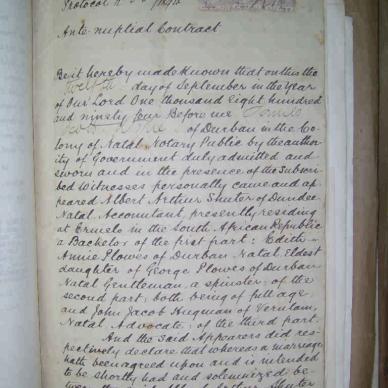 Protocol
Ante-nuptial Contract
Be it hereby made known that on this the
twelfth day of September in the Year
of our Lord One thousand Eight hundred
and ninety four Before me James
of Durban in the Co-
lony of Natal Notary Public by the autho-
rity of Government duly admitted and
sworn and in the presence of the Subscri-
bed Witnesses personally came and ap-
peared Albert Arthur Shuter of Dundee
Natal Accountant, presently residing
at Ermelo in the South African Republic
a Bachelor, of the first part: Edith
Annie Plowes of Durban Natal, Eldest
daughter of George Plowes of Durban
Natal Gentleman, a spinster, of the
second part, both being of full age
and John Jacob Hugman of Verulam,
Natal, Advocate, of the third part.
And the said Appearers did res-
pectively declare that whereas a marriage
hath been agreed upon and is intended
to be shortly had and solemnized be-
Shuter